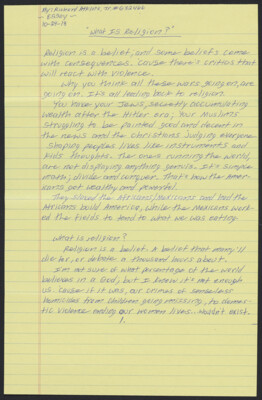 By: Richard Atkins, Sr. #
Essay -
10-24-14
"What Is Religion?"
Religion is a belief, and some beliefs come
with consequences. Cause there's critics that
will react with violence.
Why you think all these wars going on, are
going on. It's all leading back to religion.
You have your Jews, secretly accumulating
wealth after the Hitler era. Your Muslims
struggling to be painted good and decent in
the news and the Christians judging everyone
shaping peoples lives like instruments and
kids thoughts. The ones running the world,
are not displaying anything gentile. It's simple
math; divide and conquer. That's how the Amer-
icans got wealthy and powerful.
They sliced the Africans/Mexicans and had the
Africans build America, while the Mexicans work-
ed the fields to tend to what we was eating.
What is religion?
Religion is a belief. A belief that many'll
die for, or debate a thousand laws about.
I'm not sure of what percentage of the world
believes in a God, but I know it's not enough
us. 'Cause if it was, our crimes of senseless
homicides from children going missing, to domes-
tic violence ending our women lives. Wouldn't exist.
1.